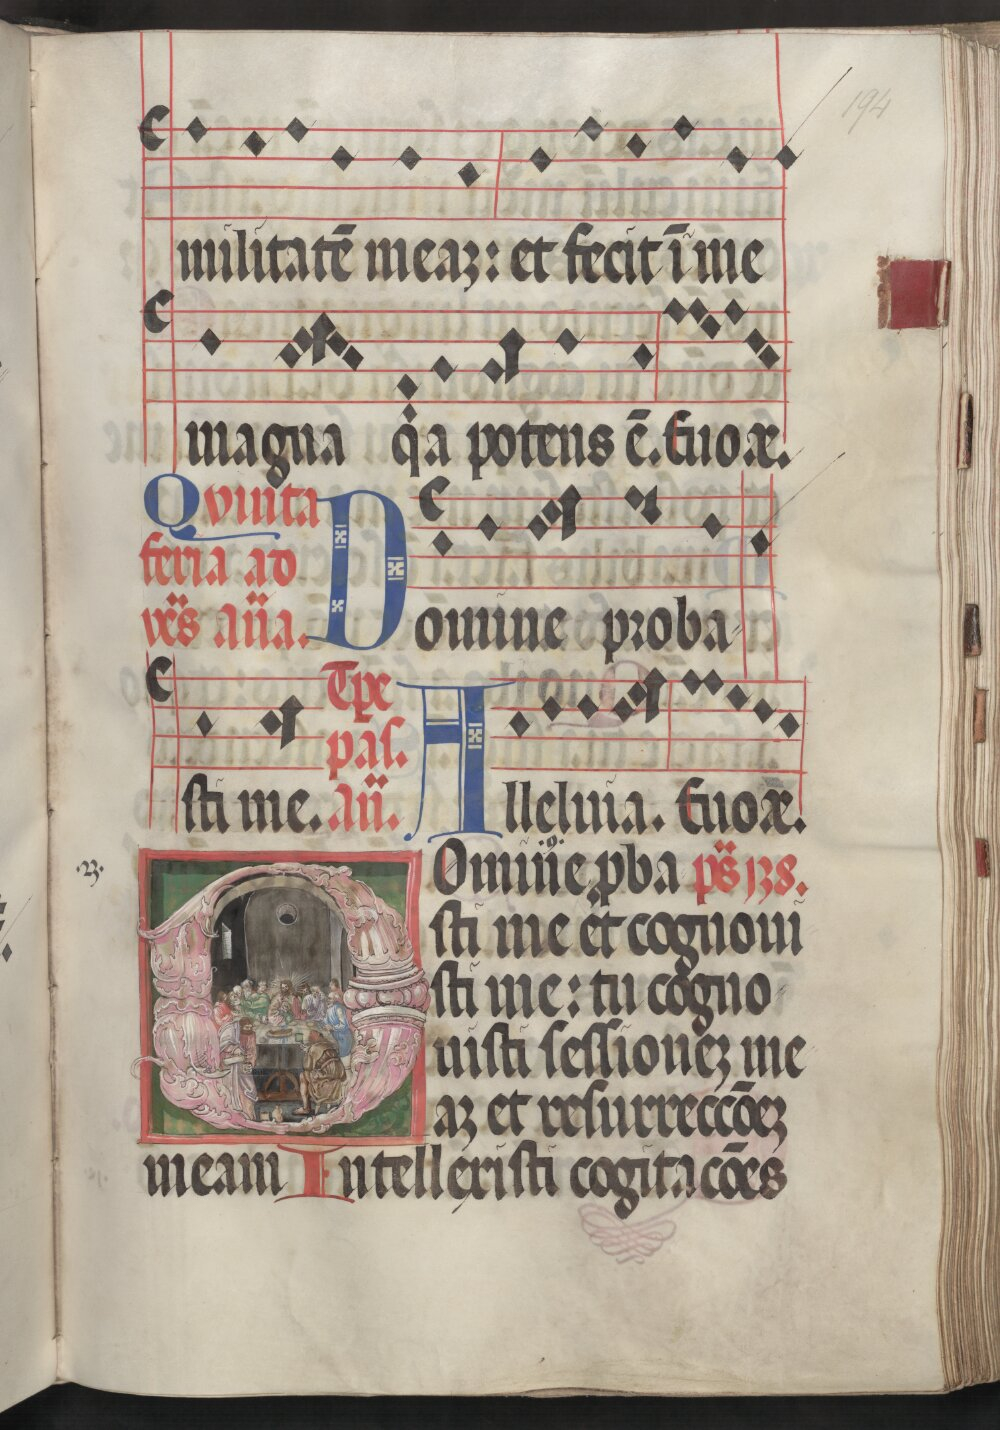 194
militatē meaꝫ: et fecit ī me
magna q̇a potens ē. Euoæ.
Qvinta
feria ad
vr̄s an̄a.
Domine proba
sti me.
Tpe
pas.
an̄.
Alleluia. Euoæ.
.23.
Domine ꝓba ps 138.
sti me et cognoui
sti me: tu cogno
uisti sessioneꝫ me
aꝫ et resurreccōeꝫ
meam Intellexisti cogitacōes